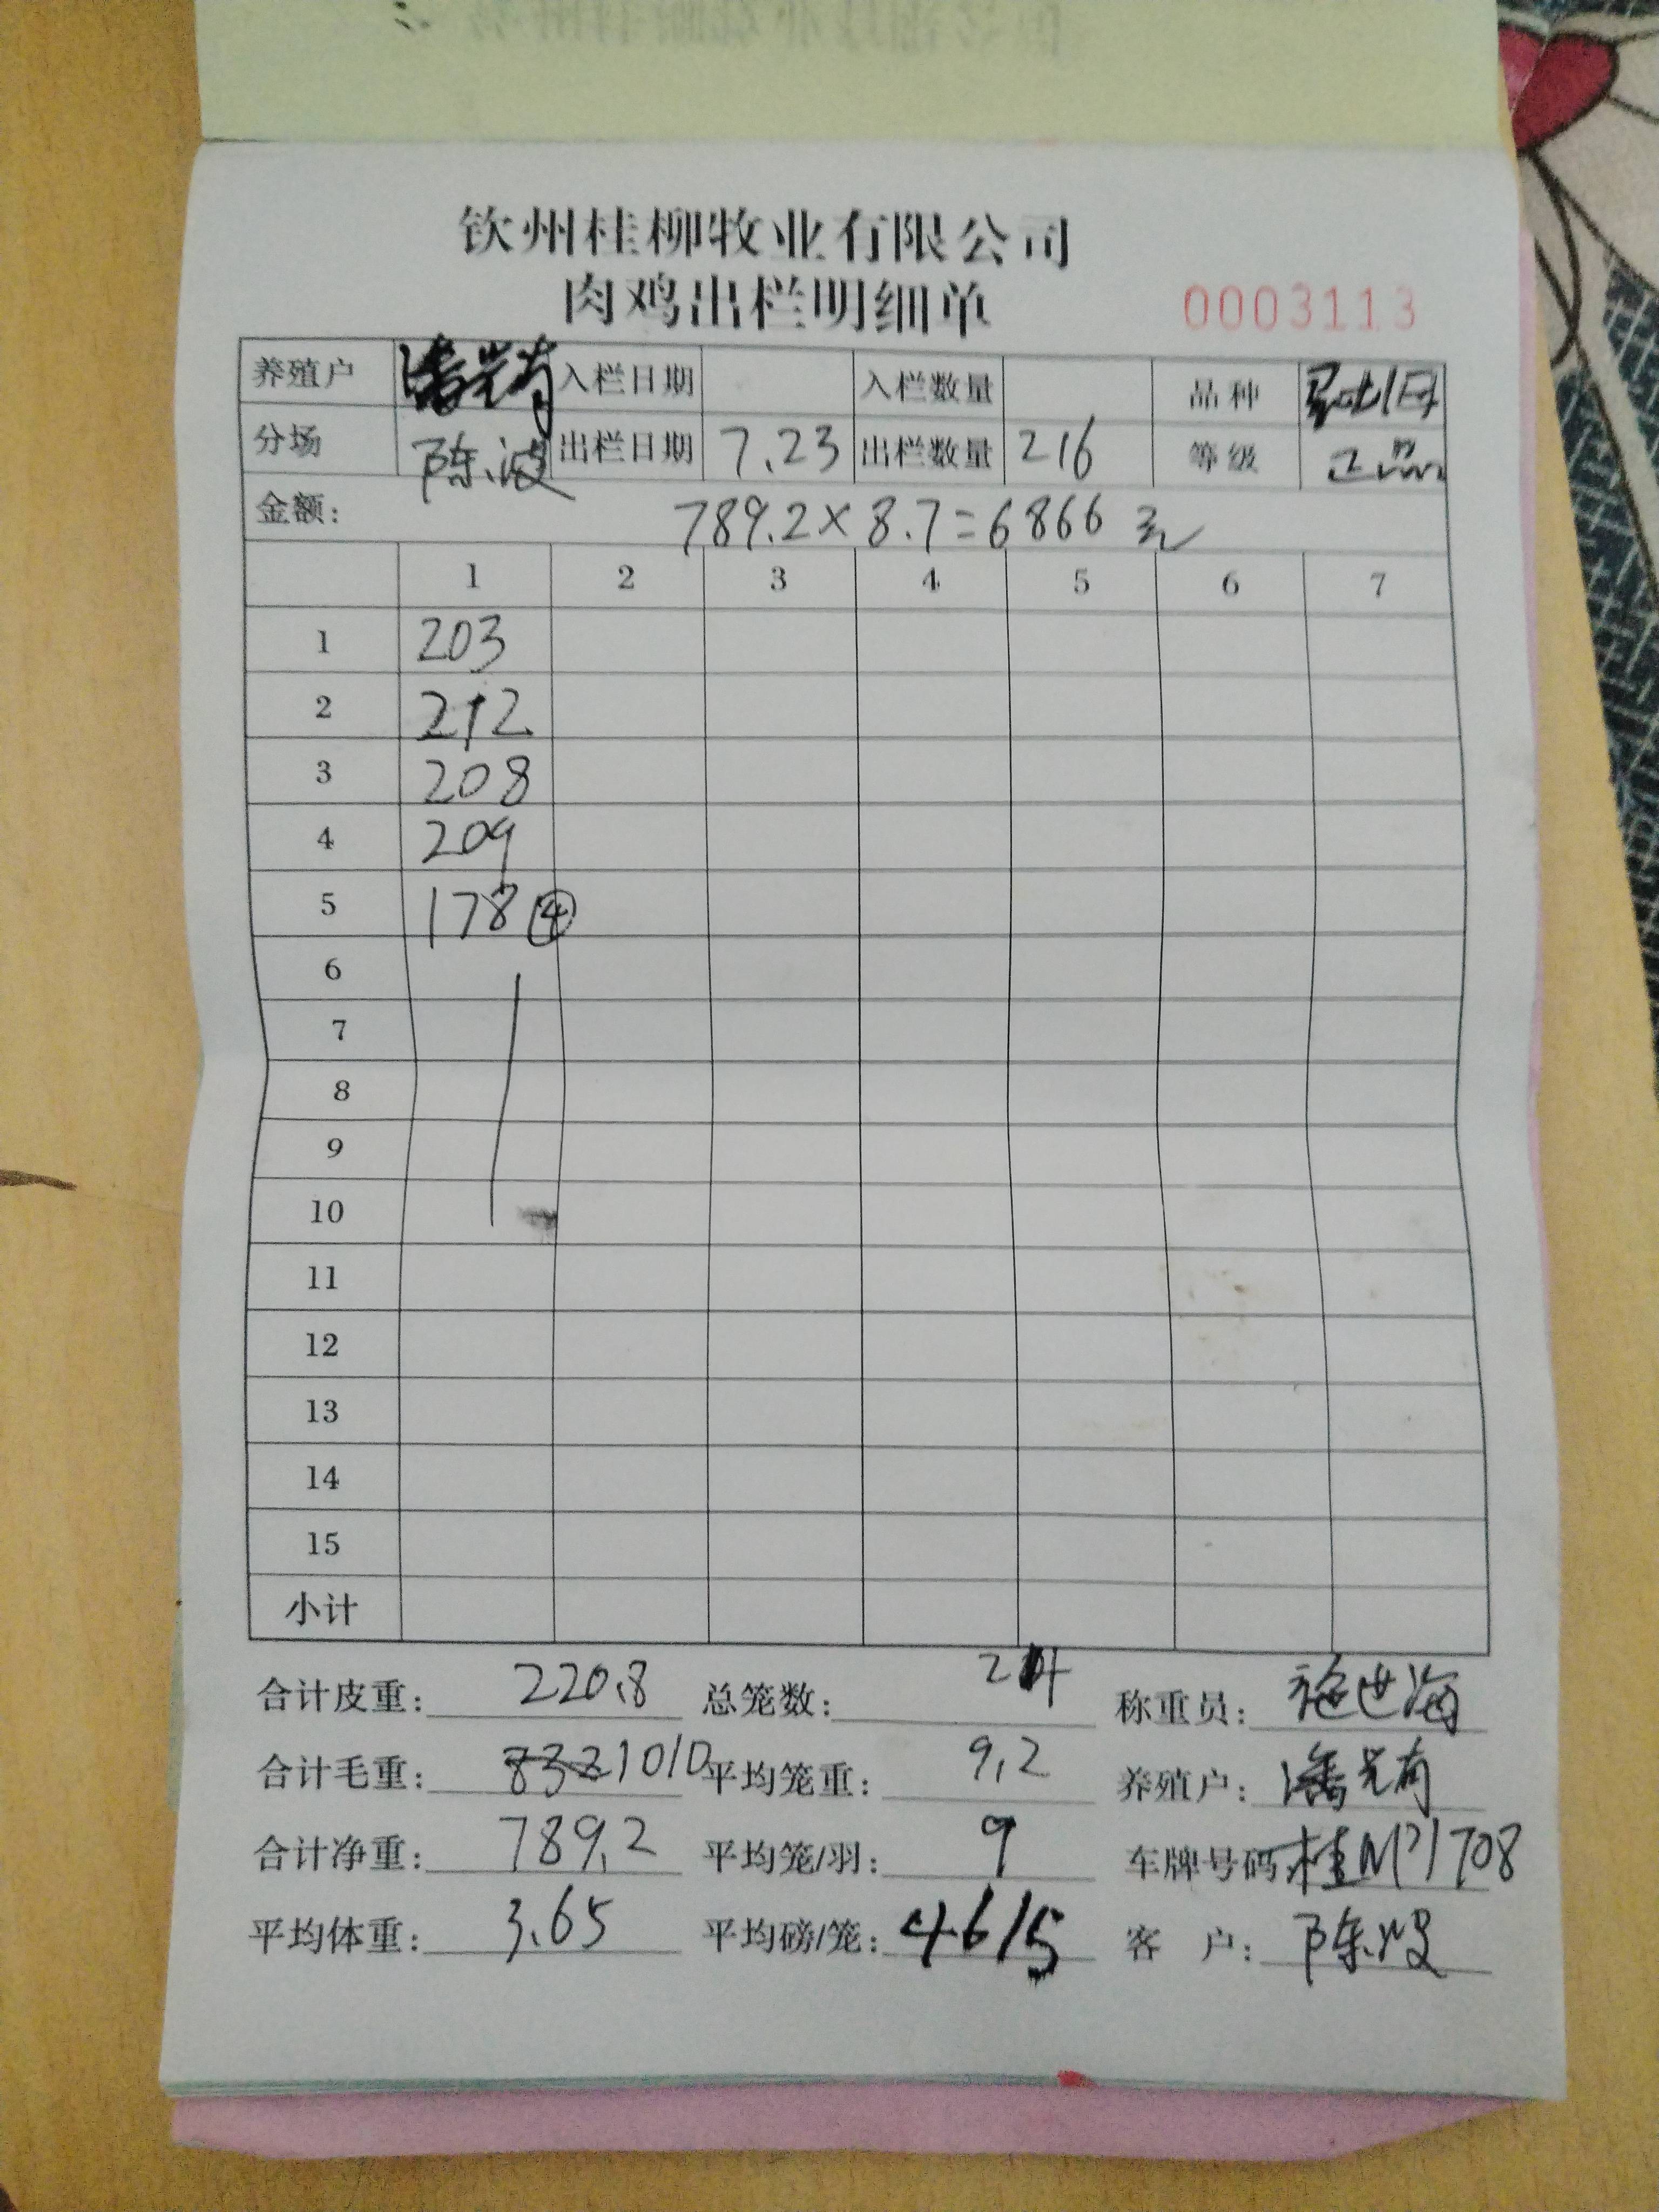 钦州桂柳牧业有限公司
肉鸡出栏明细单 0003113
养殖户 潘光有 入栏日期 入栏数量 品种
分场 陈波 出栏日期 7.23 出栏数量 216 等级 正品
金额: 789.2×8.7=6866元
1 2 3 4 5 6 7
1 203
2 212
3 208
4 209
5 178 ④
6
7
8
9
10
11
12
13
14
15
小计
合计皮重: 220.8 总笼数: 24 称重员: 施世海
合计毛重: 832 1010 平均笼重: 9.2 养殖户: 潘光有
合计净重: 789.2 平均笼/羽: 9 车牌号码: 桂M 1708
平均体重: 3.65 平均磅/笼: 4615 客户: 陈波